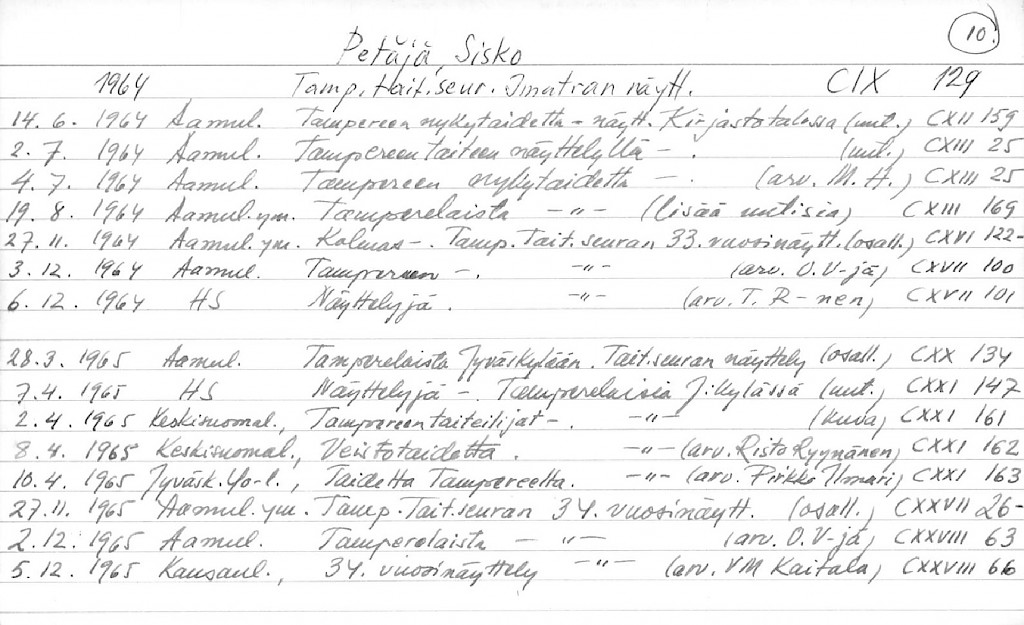 10.
Petäjä, Sisko
1964 Tamp. tait.seur. Imatran näytt. CIX 129
14. 6. 1964 Aamul. Tampereen nykytaidetta - näytt. Kirjastotalossa (uut.) CXII 159
2. 7. 1964 Aamul. Tampereen taiteen näyttelyllä - . (uut.) CXIII 25
4. 7. 1964 Aamul. Tampereen nykytaidetta - . (arv. M. H.) CXIII 25
19. 8. 1964 Aamul. ym. Tamperelaista -"- (lisää uutisia) CXIII 169
27. 11. 1964 Aamul. ym. Kolmas -. Tamp. Tait.seuran 33. vuosinäytt. (osall.) CXVI 122-
3. 12. 1964 Aamul. Tampereen -. -"- (arv. O. V-jä) CXVII 100
6. 12. 1964 HS Näyttelyjä. -"- (arv. T. R-nen) CXVII 101
28.3. 1965 Aamul. Tamperelaista Jyväskylään. Tait.seuran näyttely (osall.) CXX 134
7.4. 1965 HS Näyttelyjä -. Tamperelaisia J:kylässä (uut.) CXXI 147
2.4. 1965 Keskisuomal., Tampereen taiteilijat -. -"- (kuva) CXXI 161
8.4. 1965 Keskisuomal., Veistotaidetta. -"- (arv. Risto Ryynänen) CXXI 162
10.4. 1965 Jyväsk. Yo-l., Taidetta Tampereelta. -"- (arv. Pirkko Ilmari) CXXI 163
27.11. 1965 Aamul. ym. Tamp. Tait.seuran 34. vuosinäytt. (osall.) CXXVII 26-
2.12. 1965 Aamul. Tamperelaista - -"- (arv. O. V-jä) CXXVIII 63
5.12. 1965 Kansanl., 34. vuosinäyttely -"- (arv. VM Kaitala) CXXVIII 66